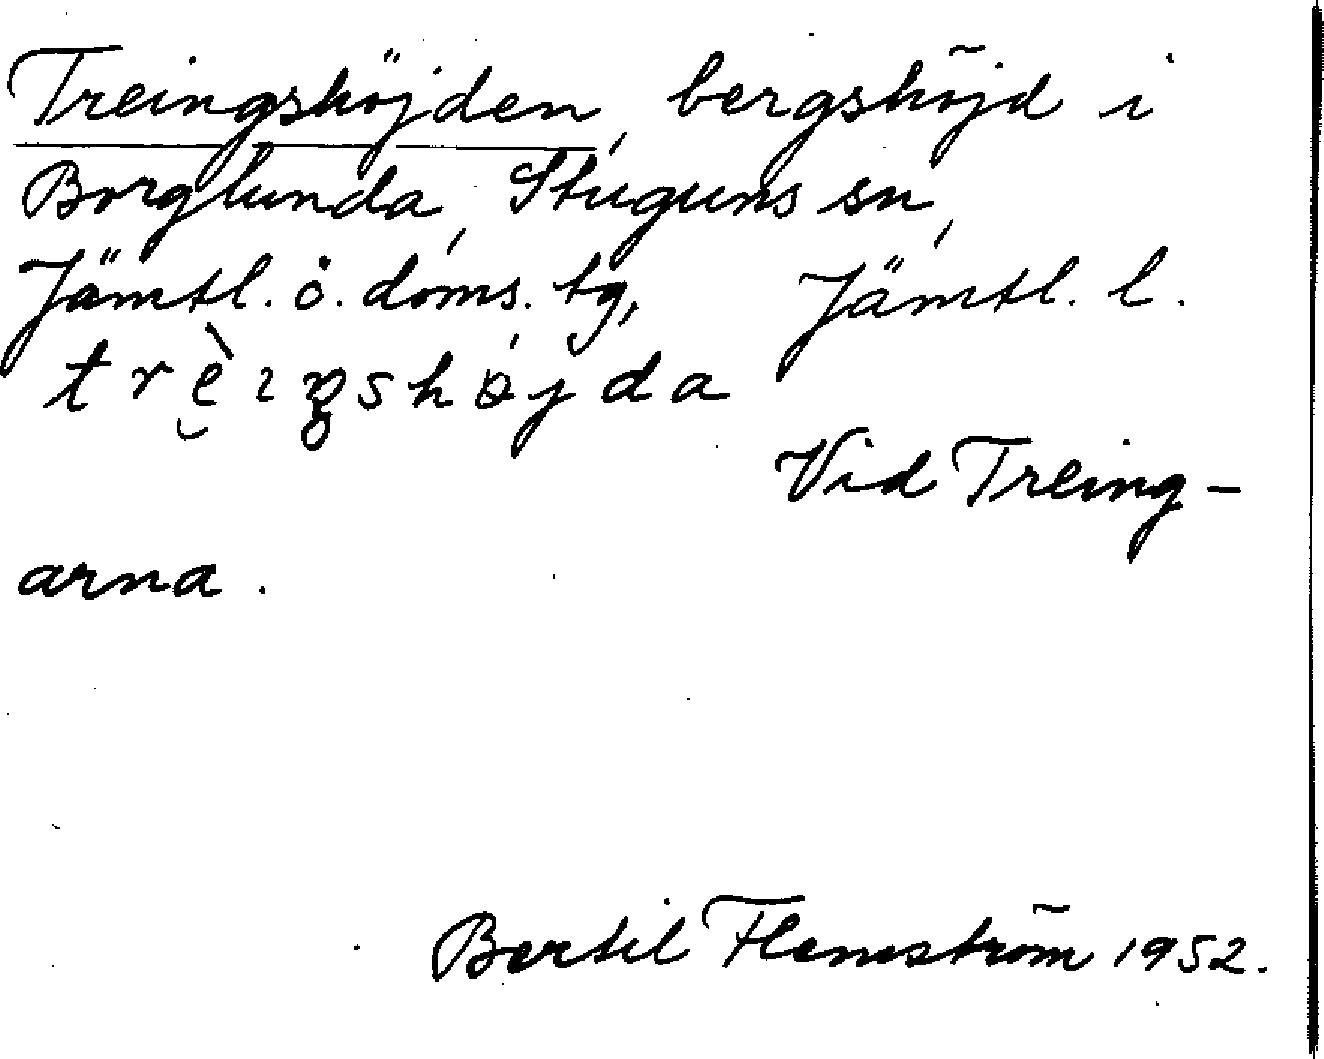 Treingshöjden, bergshöjd i
Borglunda, Stuguns sn,
Jämtl. ö. doms. tg, Jämtl. l.
Vid Treing-
arna.
Bertil Flemström 1952.